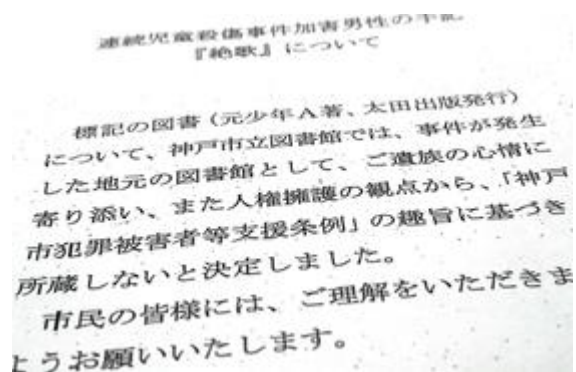 連続児童殺傷事件加害男性の手記
『絶歌』について
標記の図書（元少年A著、太田出版発行）
について、神戸市立図書館では、事件が発生
した地元の図書館として、ご遺族の心情に
寄り添い、また人権擁護の観点から、「神戸
市犯罪被害者等支援条例」の趣旨に基づき
所蔵しないと決定しました。
市民の皆様には、ご理解をいただきま
ようお願いいたします。